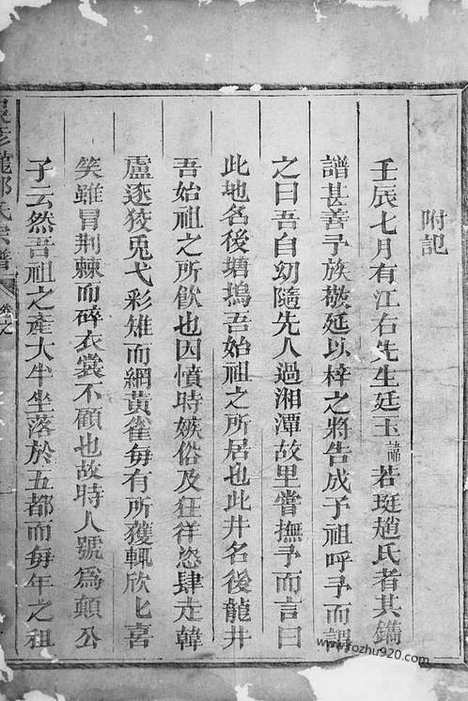 附記
壬辰七月有江右先生廷玉諱若珽趙氏者其鐫
譜甚善予族敬延以梓之將告成予祖呼予而謂
之曰吾自幼隨先人過湘潭故里嘗撫予而言曰
此地名後塘塢吾始祖之所居也此井名後龍井
吾始祖之所飲也因憤時嫉俗及徃徃恣肆走韓
盧逐狡兎弋彩雉而網黃雀每有所獲輒欣匕喜
笑雖冒荆棘而碎衣裳不顧也故時人號爲顛公
子云然吾祖之產大半坐落於五都而每年之租
龍鄧氏宗譜
卷之
www.fozhu920.com